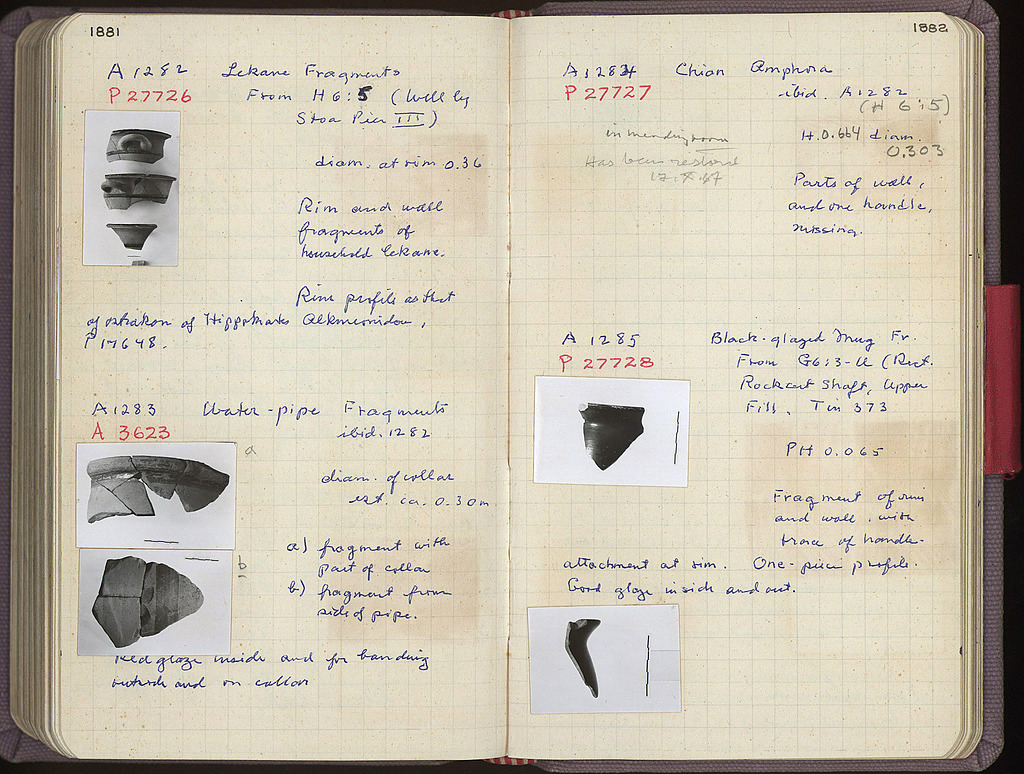 1881
A 1282 Lekane Fragments
P 27726 From H 6:5 (Well by
Stoa Pier III)
diam. at rim 0.36
Rim and wall
fragments of
household lekane.
Rim profile as that
of ostrakon of Hippokrates Alkmeonidou,
P 17648.
A 1283 Water-pipe Fragments
A 3623 ibid. 1282
a
diam. of collar
est. ca. 0.30 m
a) fragment with
part of collar
b
b) fragment from
side of pipe.
Red glaze inside and for banding
outside and on collar
1882
A 1284 Chian Amphora
P 27727 ibid. A 1282
(H 6:5)
in mending room
Has been restored
17.X.67
H. 0.664 diam.
0.303
Parts of wall,
and one handle,
missing.
A 1285 Black-glazed Mug Fr.
P 27728 From G6:3-U (Rect.
Rockcut Shaft, Upper
Fill. Tin 373
PH 0.065
Fragment of rim
and wall with
trace of handle-
attachment at rim. One-piece profile.
Good glaze inside and out.